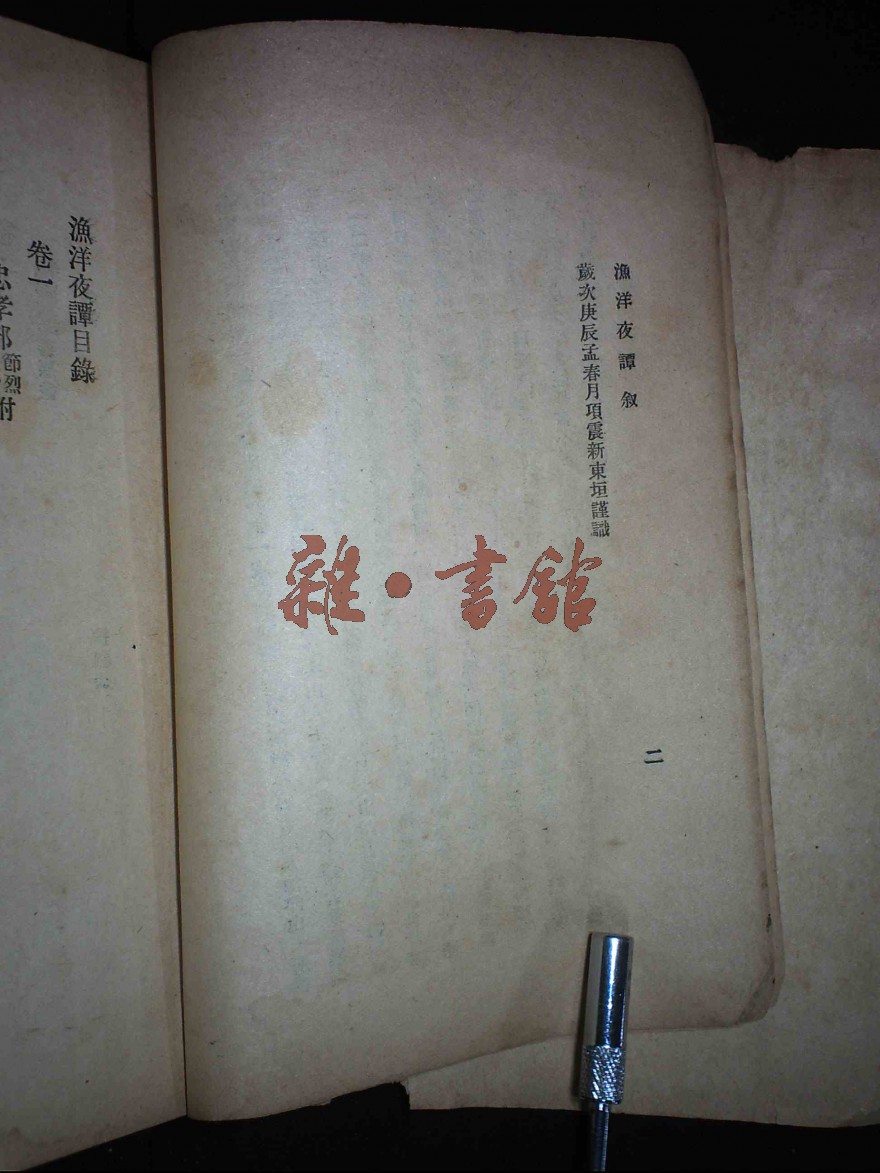 漁洋夜譚敘
歲次庚辰孟春月項震新東垣謹識
二
雜·書館
漁洋夜譚目錄
卷一
忠孝部節烈附